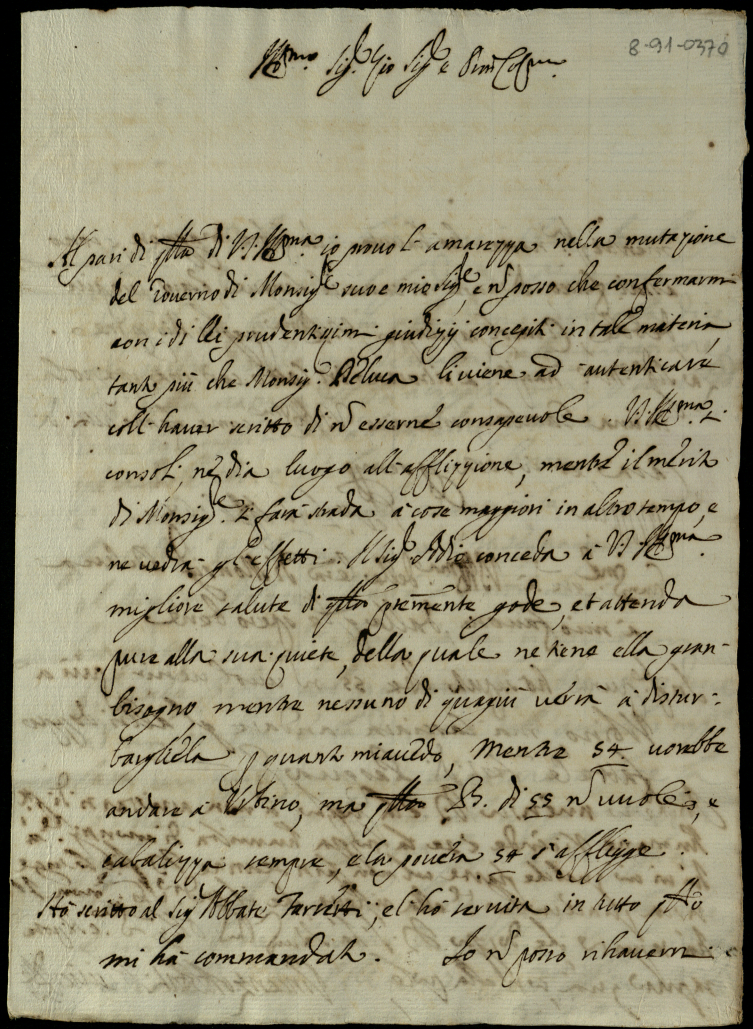 8-91-0370
Ill.mo Sig.r mio Sig.r e Pron Col.mo
Al pari di q.llo di V.S. Ill.ma io prouo l'amarezza nella mutazione
del Gouerno di Monsig.re suo e mio Sig.re, e nō posso che confermarmi
con i di lei prudentissimi giudizij concepiti in tale materia,
tanto più che Monsig.r Deluca li uiene ad autenticare
coll'hauer scritto di nō esserne consapeuole. V.S. Ill.ma si
consoli, ne dia luogo all'afflizzione, mentre il merito
di Monsig.re si farà strada à cose maggiori in altro tempo, e
ne uedrà gl'effetti. Il Sig.r Iddio conceda à V.S. Ill.ma
migliore salute di q.lla pñtemente gode, et attenda
pure alla sua quiete, della quale ne tiene ella gran
bisogno, mentre nessuno di quagiù uerrà à distur-
bargliela p quanto miauedo, mentre 54 uorebbe
andare à Vrbino, ma B. di 55 nō uuole, e
cabalizza sempre, e la pouera 54 s'affligge.
Hò scritto al Sig.r Abbate, e l'hò seruita in tutto q.llo
mi hà commandato. Io nō posso rihauermi